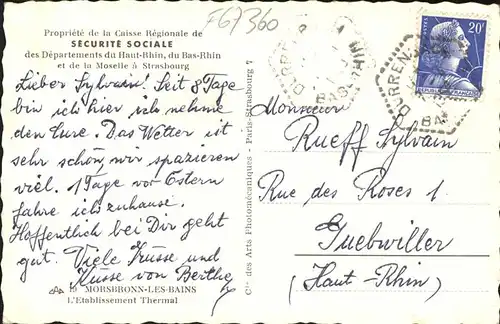 F67360
Propriété de la Caisse Régionale de
SÉCURITÉ SOCIALE
des Départements du Haut-Rhin, du Bas-Rhin
et de la Moselle à Strasbourg
Lieber Sylvain! Seit 8 Tage
bin ich hier ich nehme
den Cure. Das Wetter ist
sehr schön, wir spazieren
viel. 1 Tage vor Ostern
fahre ich zuhause.
Hoffentlich bei Dir geht
gut. Viele Grüsse und
Küsse von Berthe
MORSBRONN-LES-BAINS
L'Etablissement Thermal
Cie des Arts Photomécaniques - Paris-Strasbourg 7
20F
POSTES
DURRENB
BAS
Monsieur
Rueff Sylvain
Rue des Roses 1
Guebwiller
(Haut-Rhin)